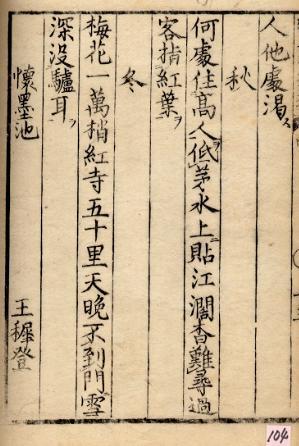 人他處渇ス
秋
何處住高人低茅水上貼江濶杳難尋過
客指紅葉ヲ
冬
梅花一萬梢紅寺五十里天晚不到門雪
深没驢耳ヲ
懷墨池 王穉登
104